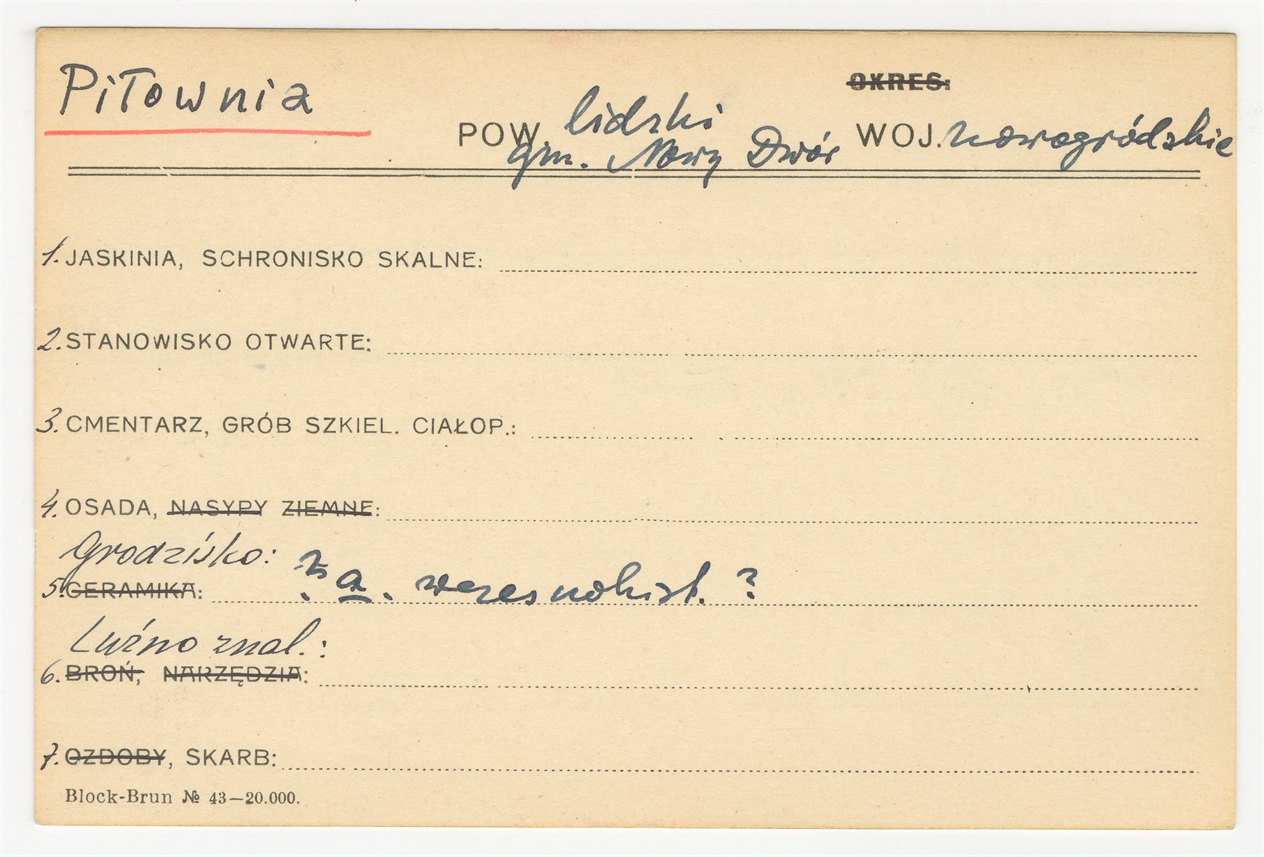 Piłownia
OKRES:
POW. lidzki WOJ. nowogródzkie
gm. Nowy Dwór
1. JASKINIA, SCHRONISKO SKALNE:
2. STANOWISKO OTWARTE:
3. CMENTARZ, GRÓB SZKIEL. CIAŁOP.:
4. OSADA, NASYPY ZIEMNE:
Grodzisko:
5. CERAMIKA: ? a. wczesnohist. ?
Luźno znal.:
6. BROŃ, NARZĘDZIA:
7. OZDOBY, SKARB:
Block-Brun № 43—20.000.